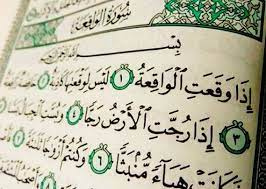 سُورَةُ الوَاقِعَةِ
بِسْمِ
إِذَا وَقَعَتِ ٱلْوَاقِعَةُ ١ لَيْسَ لِوَقْعَتِهَا
٣ إِذَا رُجَّتِ ٱلْأَرْضُ رَجًّا ٤ وَبُسَّتِ ٱلْجِبَالُ
هَبَآءً مُّنۢبَثًّا ٦ وَكُنتُمْ أَزْوَٰجًا